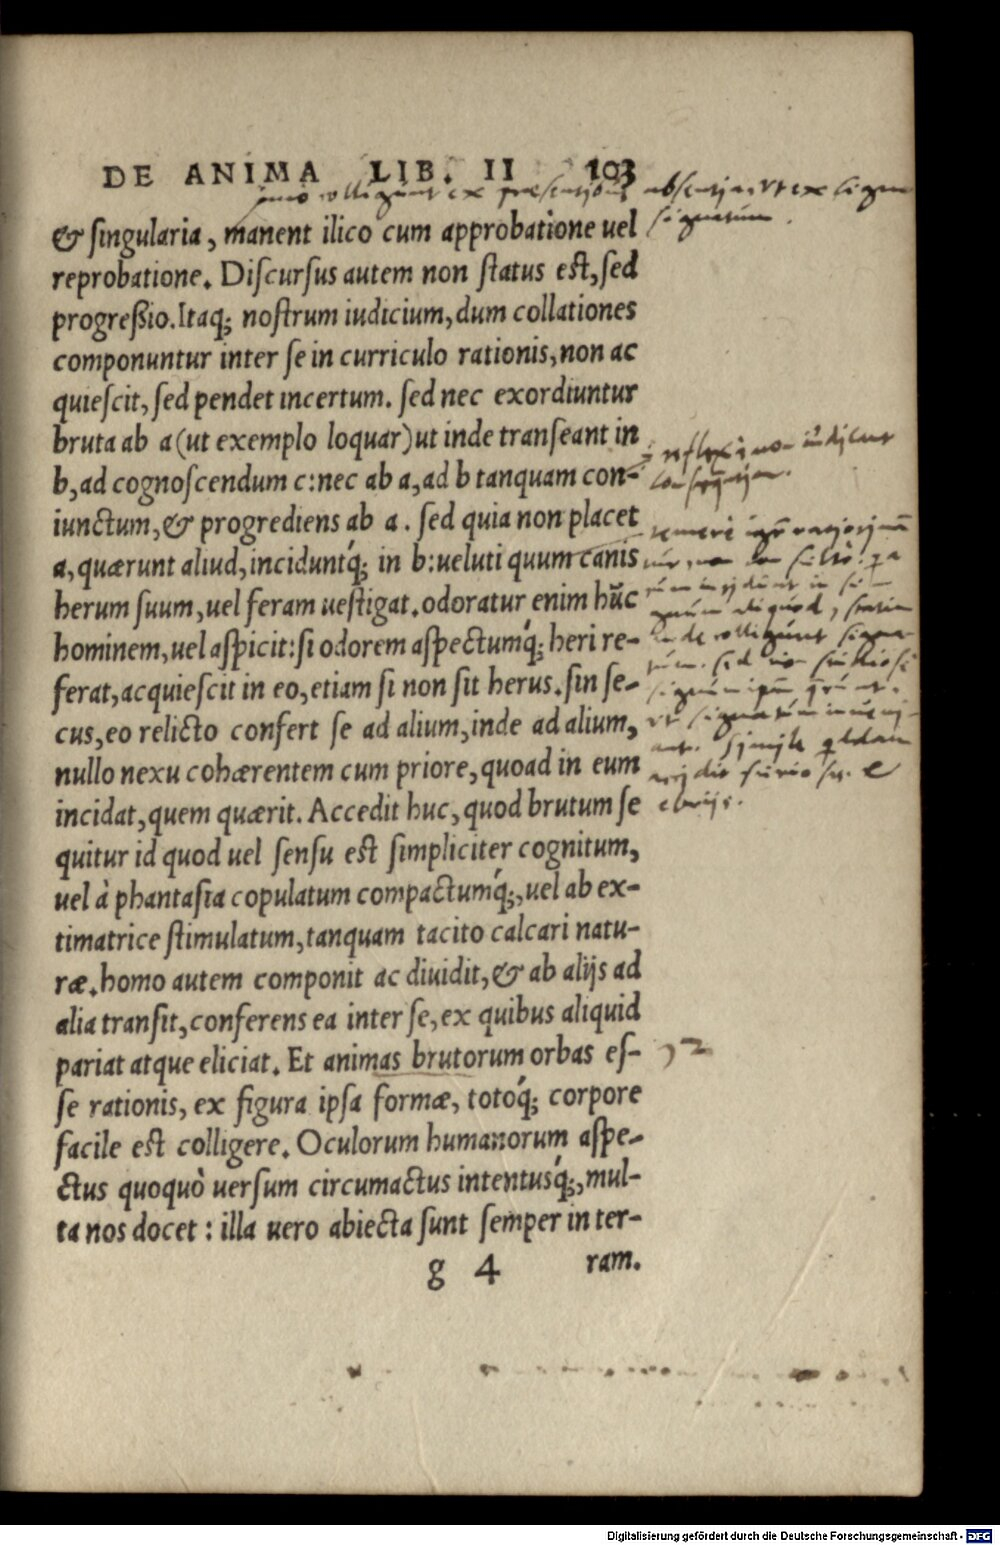 DE ANIMA LIB. II 103
immo colligunt ex præsentibus absentia, ut ex signo
signatum.
& ſingularia, manent ilico cum approbatione uel
reprobatione. Diſcurſus autem non ſtatus eſt, ſed
progreßio. Itaq; noſtrum iudicium, dum collationes
componuntur inter ſe in curriculo rationis, non ac
quieſcit, ſed pendet incertum. ſed nec exordiuntur
bruta ab a (ut exemplo loquar) ut inde tranſeant in
b, ad cognoſcendum c: nec ab a, ad b tanquam con-
iunctum, & progrediens ab a. ſed quia non placet
a, quærunt aliud, inciduntq́; in b: ueluti quum canis
herum ſuum, uel feram ueſtigat. odoratur enim hũc
hominem, uel aſpicit: ſi odorem aſpectumq́; heri re-
ferat, acquieſcit in eo, etiam ſi non ſit herus. ſin ſe-
cus, eo relicto confert ſe ad alium, inde ad alium,
nullo nexu cohærentem cum priore, quoad in eum
incidat, quem quærit. Accedit huc, quod brutum ſe
quitur id quod uel ſenſu eſt ſimpliciter cognitum,
uel à phantaſia copulatum compactumq́;, uel ab ex-
timatrice ſtimulatum, tanquam tacito calcari natu-
ræ. homo autem componit ac diuidit, & ab alijs ad
alia tranſit, conferens ea inter ſe, ex quibus aliquid
pariat atque eliciat. Et animas brutorum orbas eſ-
ſe rationis, ex figura ipſa formæ, totoq́; corpore
facile eſt colligere. Oculorum humanorum aſpe-
ctus quoquò uerſum circumactus intentusq́;, mul-
ta nos docet: illa uero abiecta ſunt ſemper in ter-
g 4 ram.
Digitalisierung gefördert durch die Deutsche Forschungsgemeinschaft - DFG